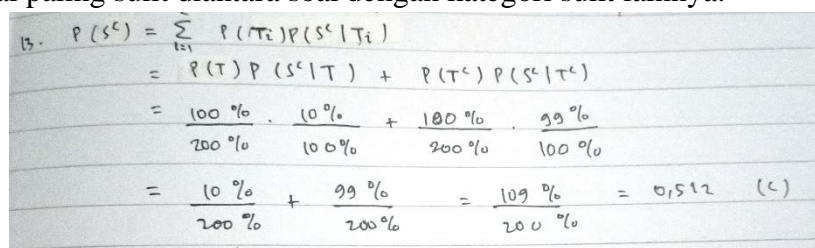 al paling sulit diantara soal dengan kategori sulit lainnya.
13. P(Sᶜ) = Σ P(Ti)P(Sᶜ|Ti)
i=1
= P(T) P(Sᶜ|T) + P(Tᶜ) P(Sᶜ|Tᶜ)
= 100 %/200 % . 10 %/100 % + 100 %/200 % . 99 %/100 %
= 10 %/200 % + 99 %/200 % = 109 %/200 % = 0,512 (c)